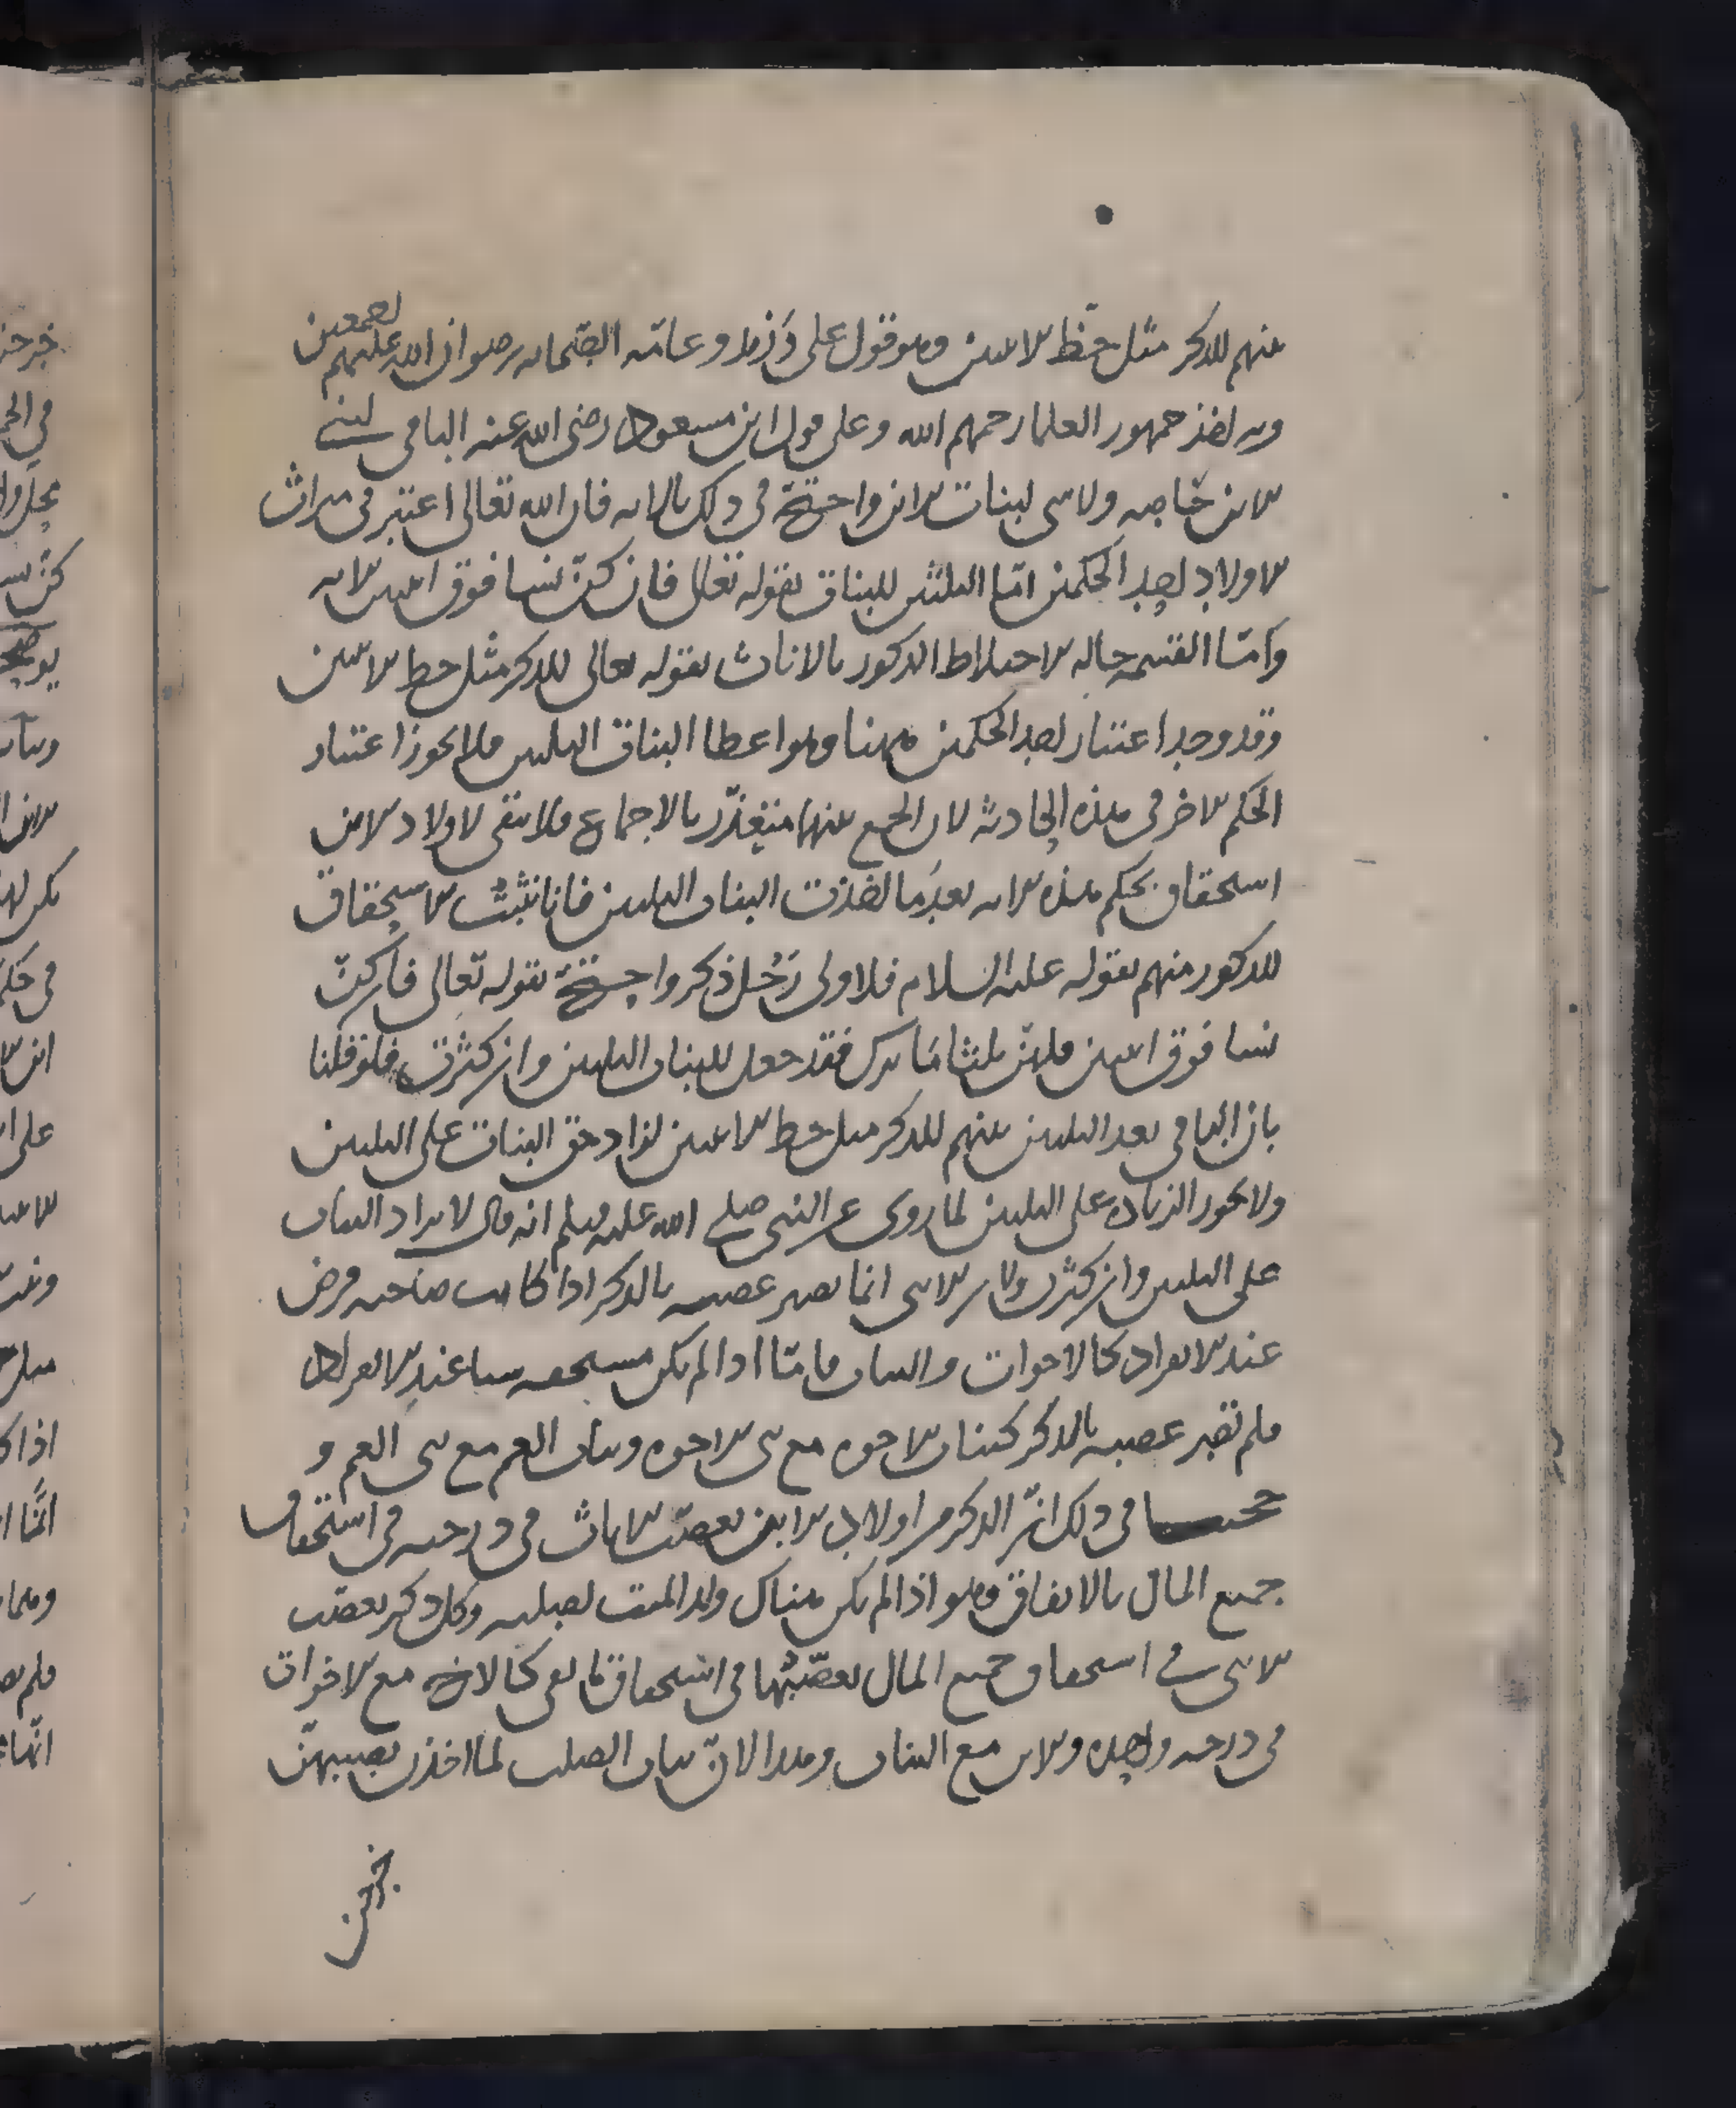 بينهم للذكر مثل حظ الانثيين وهو قول علي وزيد وعامة الصحابة رضوان الله عليهم اجمعين
وبه اخذ جمهور العلما رحمهم الله وعلى قول ابن مسعود رضي الله عنه الباقي لبني
الابن خاصه ولا شي لبنات الابن واحتج في ذلك بالايه فان الله تعالى اعتبر في ميراث
الاولاد احد الحكمين امّا الثلثين للبنات بقوله تعالى فان كنّ نسا فوق اثنتين الايه
وامّا القسمه حاله الاختلاط الذكور بالاناث بقوله تعالى للذكر مثل حظ الانثيين
وقد وجد اعتبار احد الحكمين ههنا وهو اعطا البنات الثلثين فلا يجوز اعتبار
الحكم الاخر في هذه الحادثه لان الجمع بينهما متعذّر بالاجماع فلا يبقى لاولاد الابن
استحقاق بحكم هذه الايه بعد ما اخذت البنات الثلثين فانا نثبت الاستحقاق
للذكور منهم بقوله عليه السلام فلاولى رجُل ذكر واحتج بقوله تعالى فان كنّ
نسا فوق اثنتين فلهنّ ثلثا ما ترك فقد جعل للبنات الثلثين وان كثرت فلو قلنا
بان الباقي بعد الثلثين بينهم للذكر مثل حظ الانثيين لزاد حق البنات على الثلثين
ولا يجوز الزياده على الثلثين لما روي عن النبي صلى الله عليه وسلم انه قال لا يزاد البنات
على الثلثين وان كثرن ولان الانثى انما تصير عصبه بالذكر اذا كانت صاحبه فرض
عند الانفراد كالاخوات والبنات فامّا اذا لم تكن مستحقه شيا عند الانفراد
فلم تصر عصبه بالذكر كبنات الاخوه مع بني الاخوه وبنات العم مع بني العم و
حجتنا في ذلك انّ الذكر من اولاد الابن يعصّب الاناث في درجته في استحقاق
جميع المال بالاتفاق وهو اذا لم يكن هناك ولد الميت لصلبه وكل ذكر يعصّب
الانثى في استحقاق جميع المال يعصّبها في استحقاق ما بقي كالاخ مع الاخوات
في درجه واحده والابن مع البنات وهذا لانّ بنات الصلب لما اخذن نصيبهنّ
خرجن